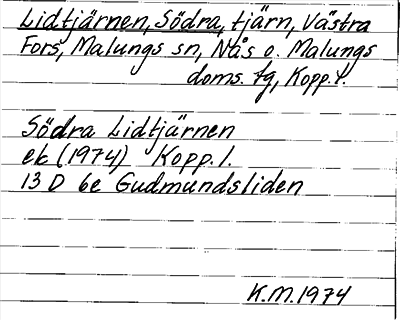 Lidtjärnen, Södra, tjärn, Västra
Fors, Malungs sn, Nås o. Malungs
doms. fg, Kopp. l.
Södra Lidtjärnen
ek (1974) Kopp. l.
13 D 6e Gudmundsliden
K.M. 1974